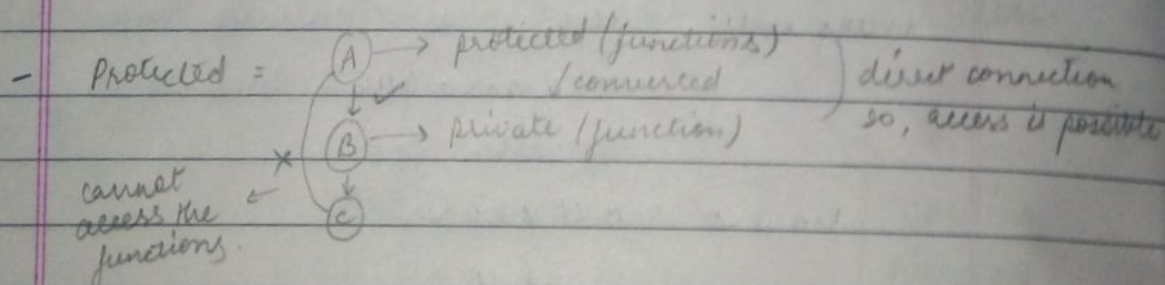 - Protected = A → protected (functions)
↓ converted
direct connection
B → private (function)
so, access is possible
×
cannot
access the
functions.
C